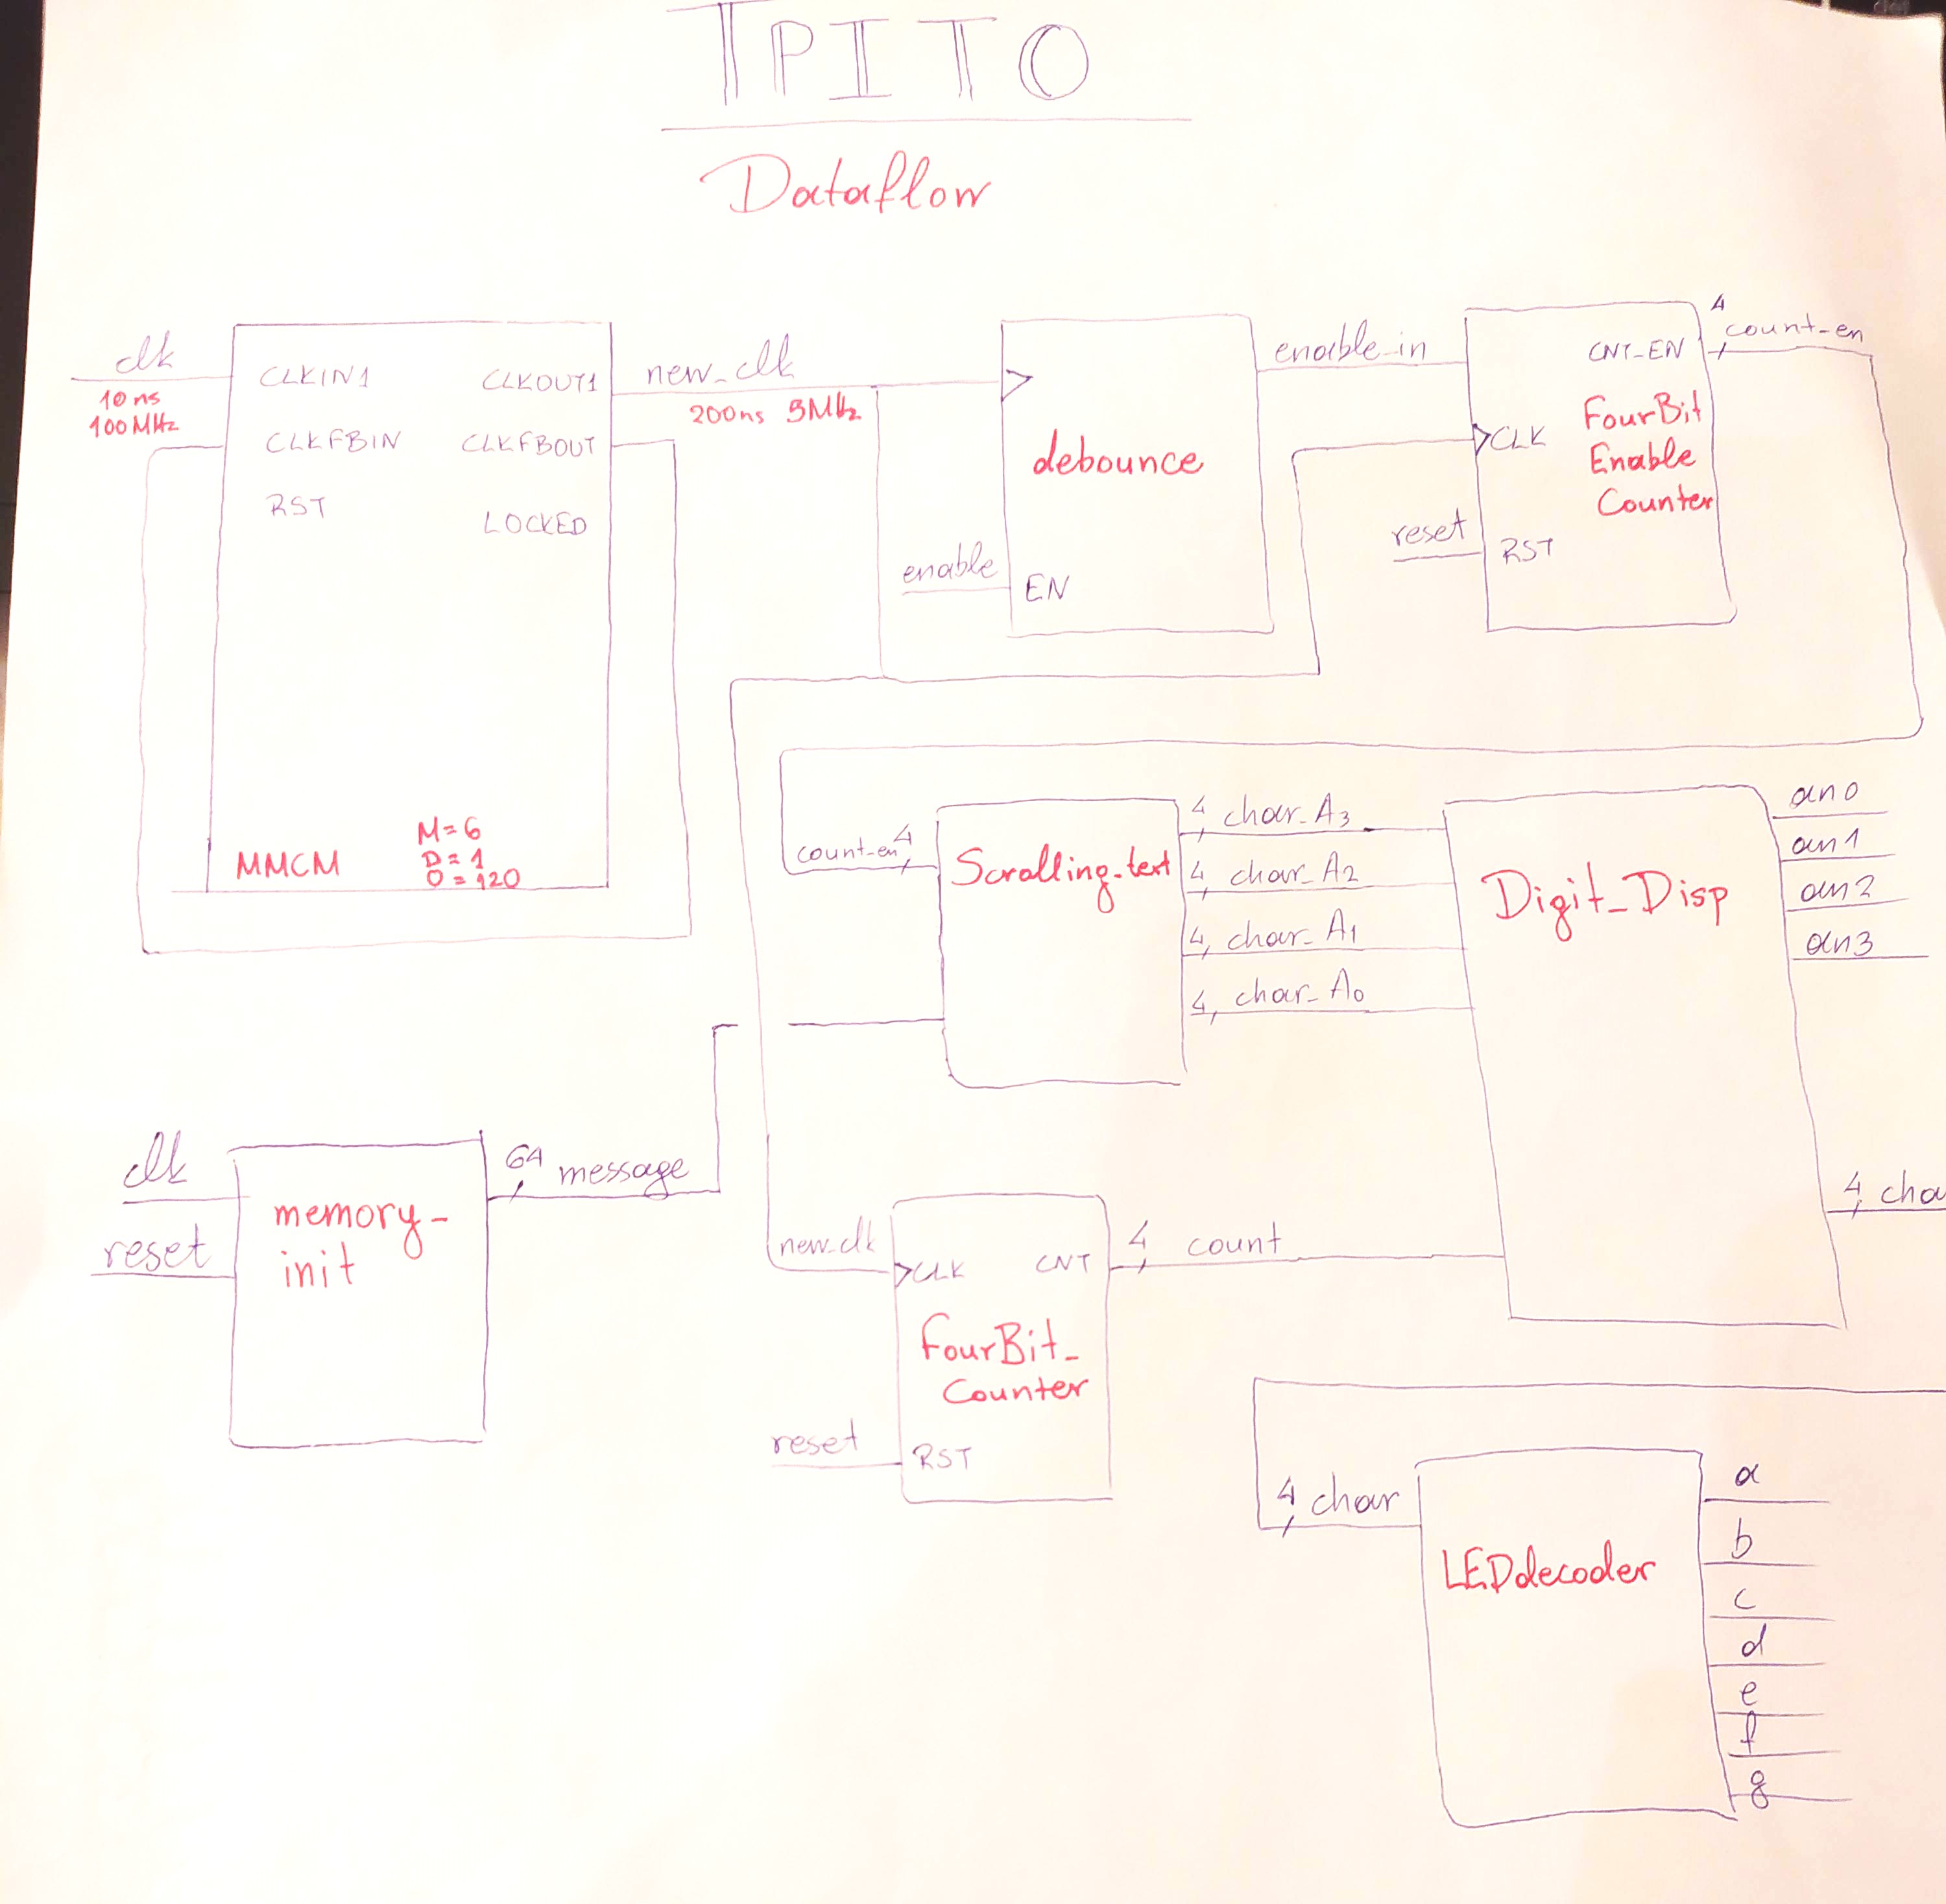 TPITO
Dataflow
clk
10ns
100MHz
CLKIN1
CLKFBIN
RST
CLKOUT1
CLKFBOUT
LOCKED
MMCM
M=6
D=1
O=120
new_clk
200ns 5MHz
debounce
enable
EN
enable_in
CNT_EN
FourBit
Enable
Counter
CLK
reset
RST
4
count_en
count_en 4
Scrolling_text
4 char_A3
4 char_A2
4 char_A1
4 char_A0
Digit_Disp
an0
an1
an2
an3
4 cha
clk
reset
memory_
init
64 message
new_clk
CLK
CNT
FourBit_
Counter
reset
RST
4 count
4 char
LEDdecoder
a
b
c
d
e
f
g